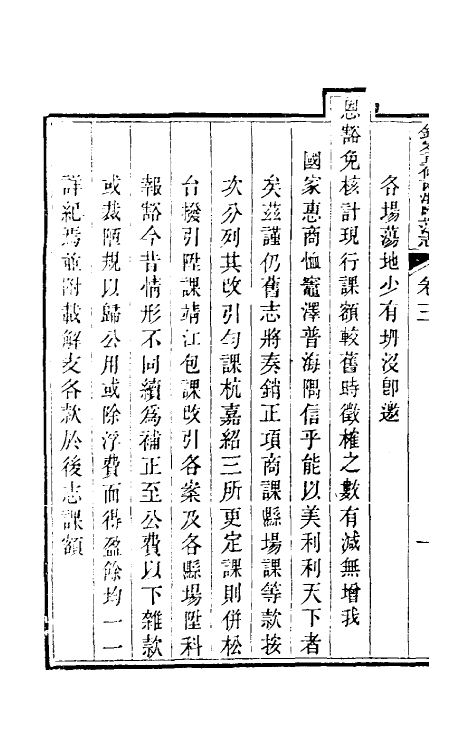 各場蕩地少有坍沒卽邀
恩豁免核計現行課額較舊時徵榷之數有減無增我
國家惠商恤竈澤普海隅信乎能以美利利天下者
矣茲謹仍舊志將奏銷正項商課縣場課等款按
次分列其改引勻課杭嘉紹三所更定課則併松
台撥引陞課靖江包課改引各案及各縣場陞科
報豁今昔情形不同續為補正至公費以下雜款
或裁陋規以歸公用或除浮費而得盈餘均一一
詳紀焉並附載解支各款於後志課額
卷三
一